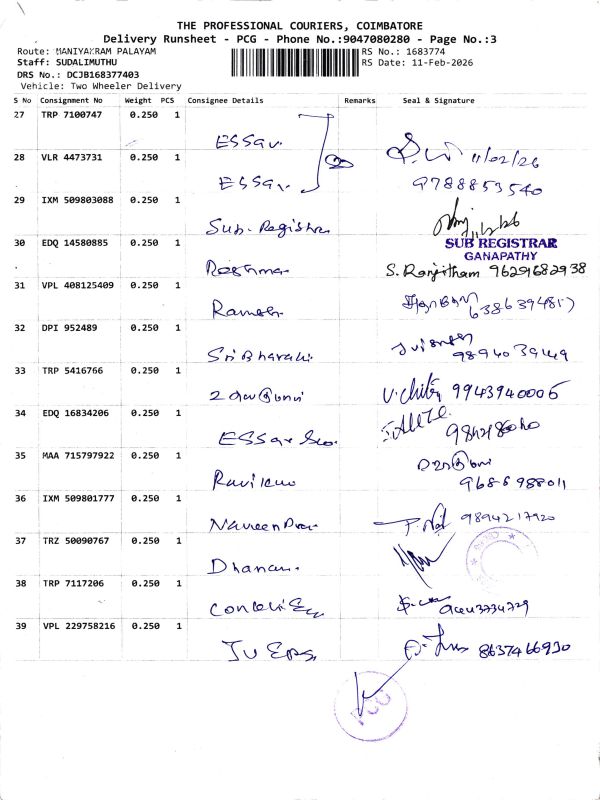 THE PROFESSIONAL COURIERS, COIMBATORE
Delivery Runsheet - PCG - Phone No.:9047080280 - Page No.:3
Route: MANIYAKRAM PALAYAM
RS No.: 1683774
Staff: SUDALIMUTHU
RS Date: 11-Feb-2026
DRS No.: DCJB168377403
Vehicle: Two Wheeler Delivery
S No Consignment No Weight PCS Consignee Details Remarks Seal & Signature
27 TRP 7100747 0.250 1
ESSav.
11/02/26
28 VLR 4473731 0.250 1
ESSav. 9788853540
29 IXM 509803088 0.250 1
Sub-Registra
SUB REGISTRAR
GANAPATHY
30 EDQ 14580885 0.250 1
Roshma S. Ranjitham 9629682938
31 VPL 408125409 0.250 1
Ramesh
32 DPI 952489 0.250 1
Sri Bharathi
33 TRP 5416766 0.250 1
9943940006
34 EDQ 16834206 0.250 1
35 MAA 715797922 0.250 1
9686988011
36 IXM 509801777 0.250 1
9894217920
37 TRZ 50090767 0.250 1
38 TRP 7117206 0.250 1
39 VPL 229758216 0.250 1
8637466930
PCG